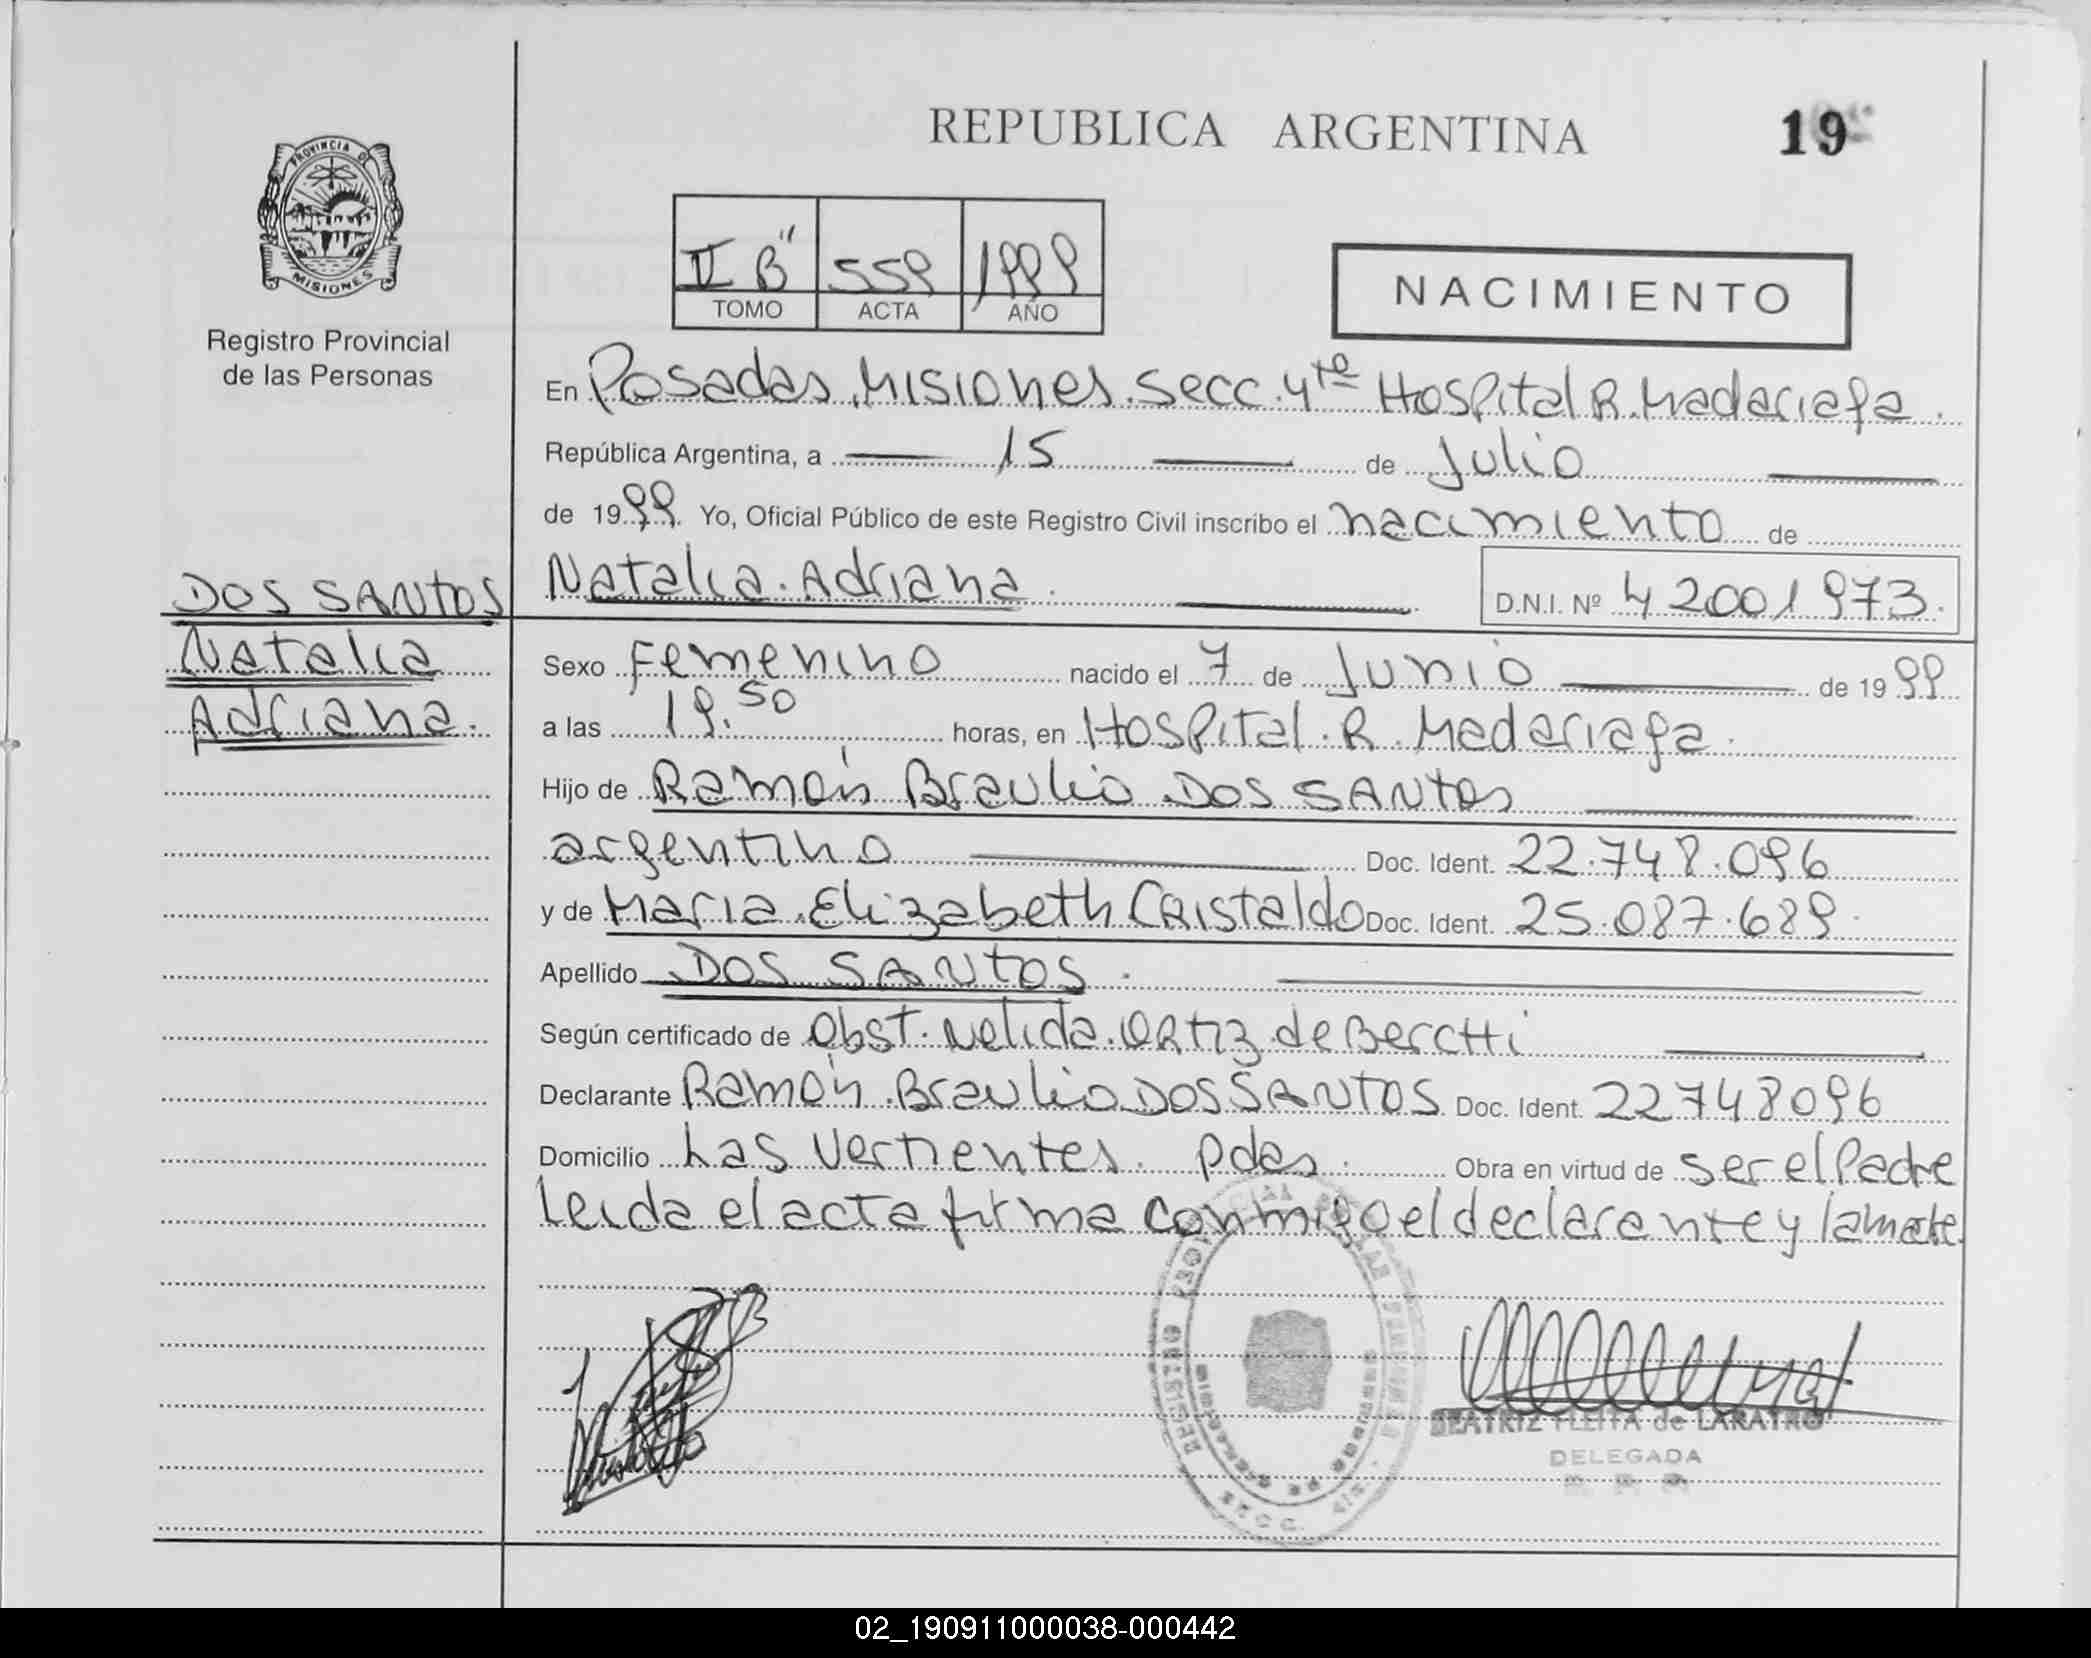 REPUBLICA ARGENTINA
19
PROVINCIA DE
MISIONES
Registro Provincial
de las Personas
II B" 559 1999
TOMO ACTA AÑO
NACIMIENTO
En Posadas, Misiones. Secc. 4ta Hospital R. Madariaga.
República Argentina, a 15 de Julio
de 1999. Yo, Oficial Público de este Registro Civil inscribo el nacimiento de
DOS SANTOS
Natalia
Adriana.
Natalia. Adriana. D.N.I. Nº 42001973.
Sexo Femenino nacido el 7 de Junio de 1999
a las 19.50 horas, en Hospital. R. Madariaga.
Hijo de Ramón Braulio DOS SANTOS
argentino Doc. Ident. 22.748.096
y de Maria. Elizabeth Cristaldo Doc. Ident. 25.087.689.
Apellido DOS SANTOS.
Según certificado de Obst. Nelida. Ortiz de
Declarante Ramón. Braulio DOS SANTOS Doc. Ident. 22748096
Domicilio Las Vertientes. Pdas. Obra en virtud de ser el Padre
Leida el acta firma conmigo el declarante y la
BEATRIZ FLEITA de LARATRO
DELEGADA
02_190911000038-000442